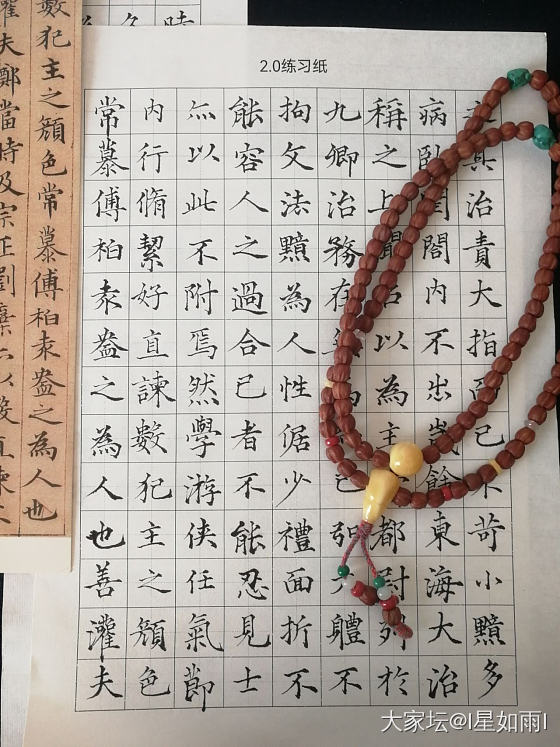 2.0练习纸
其治責大指已苛小黯多
病臥閤內不出歲餘東海大治
稱之上以為主都尉列於
九卿治務在弘體不
拘文法黯為人性倨少禮面折不
能容人之過合已者不能忍見士
亦以此不附焉然學游俠任氣節
內行脩絜好直諫數犯主之顏色
常慕傅柏袁盎之為人也善灌夫
數犯主之顏色常慕傅柏袁盎之為人也
灌夫鄭當時及宗正劉棄亦以數直諫
大家坛@I星如雨I